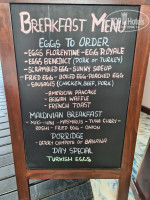 BREAKFAST MENU
EGGS TO ORDER
- EGGS FLORENTINE - EGG ROYALE
- EGGS BENEDICT (PORK OR TURKEY)
- SCRAMBLED EGG - SUNNY SIDE UP
FRIED EGG - BOILED EGG - POACHED EGG
- SAUSAGES (CHICKEN, BEEF, PORK)
- AMERICAN PANCAKE
- BELGIAN WAFFLE
- FRENCH TOAST
MALDIVIAN BREAKFAST
MAS-HUNI - TUNA CURRY
ROSHI - FRIED EGG - ONION
PORRIDGE
- BERRY COMPOTE OR BANANA
DAY SPECIAL
TURKISH EGGS